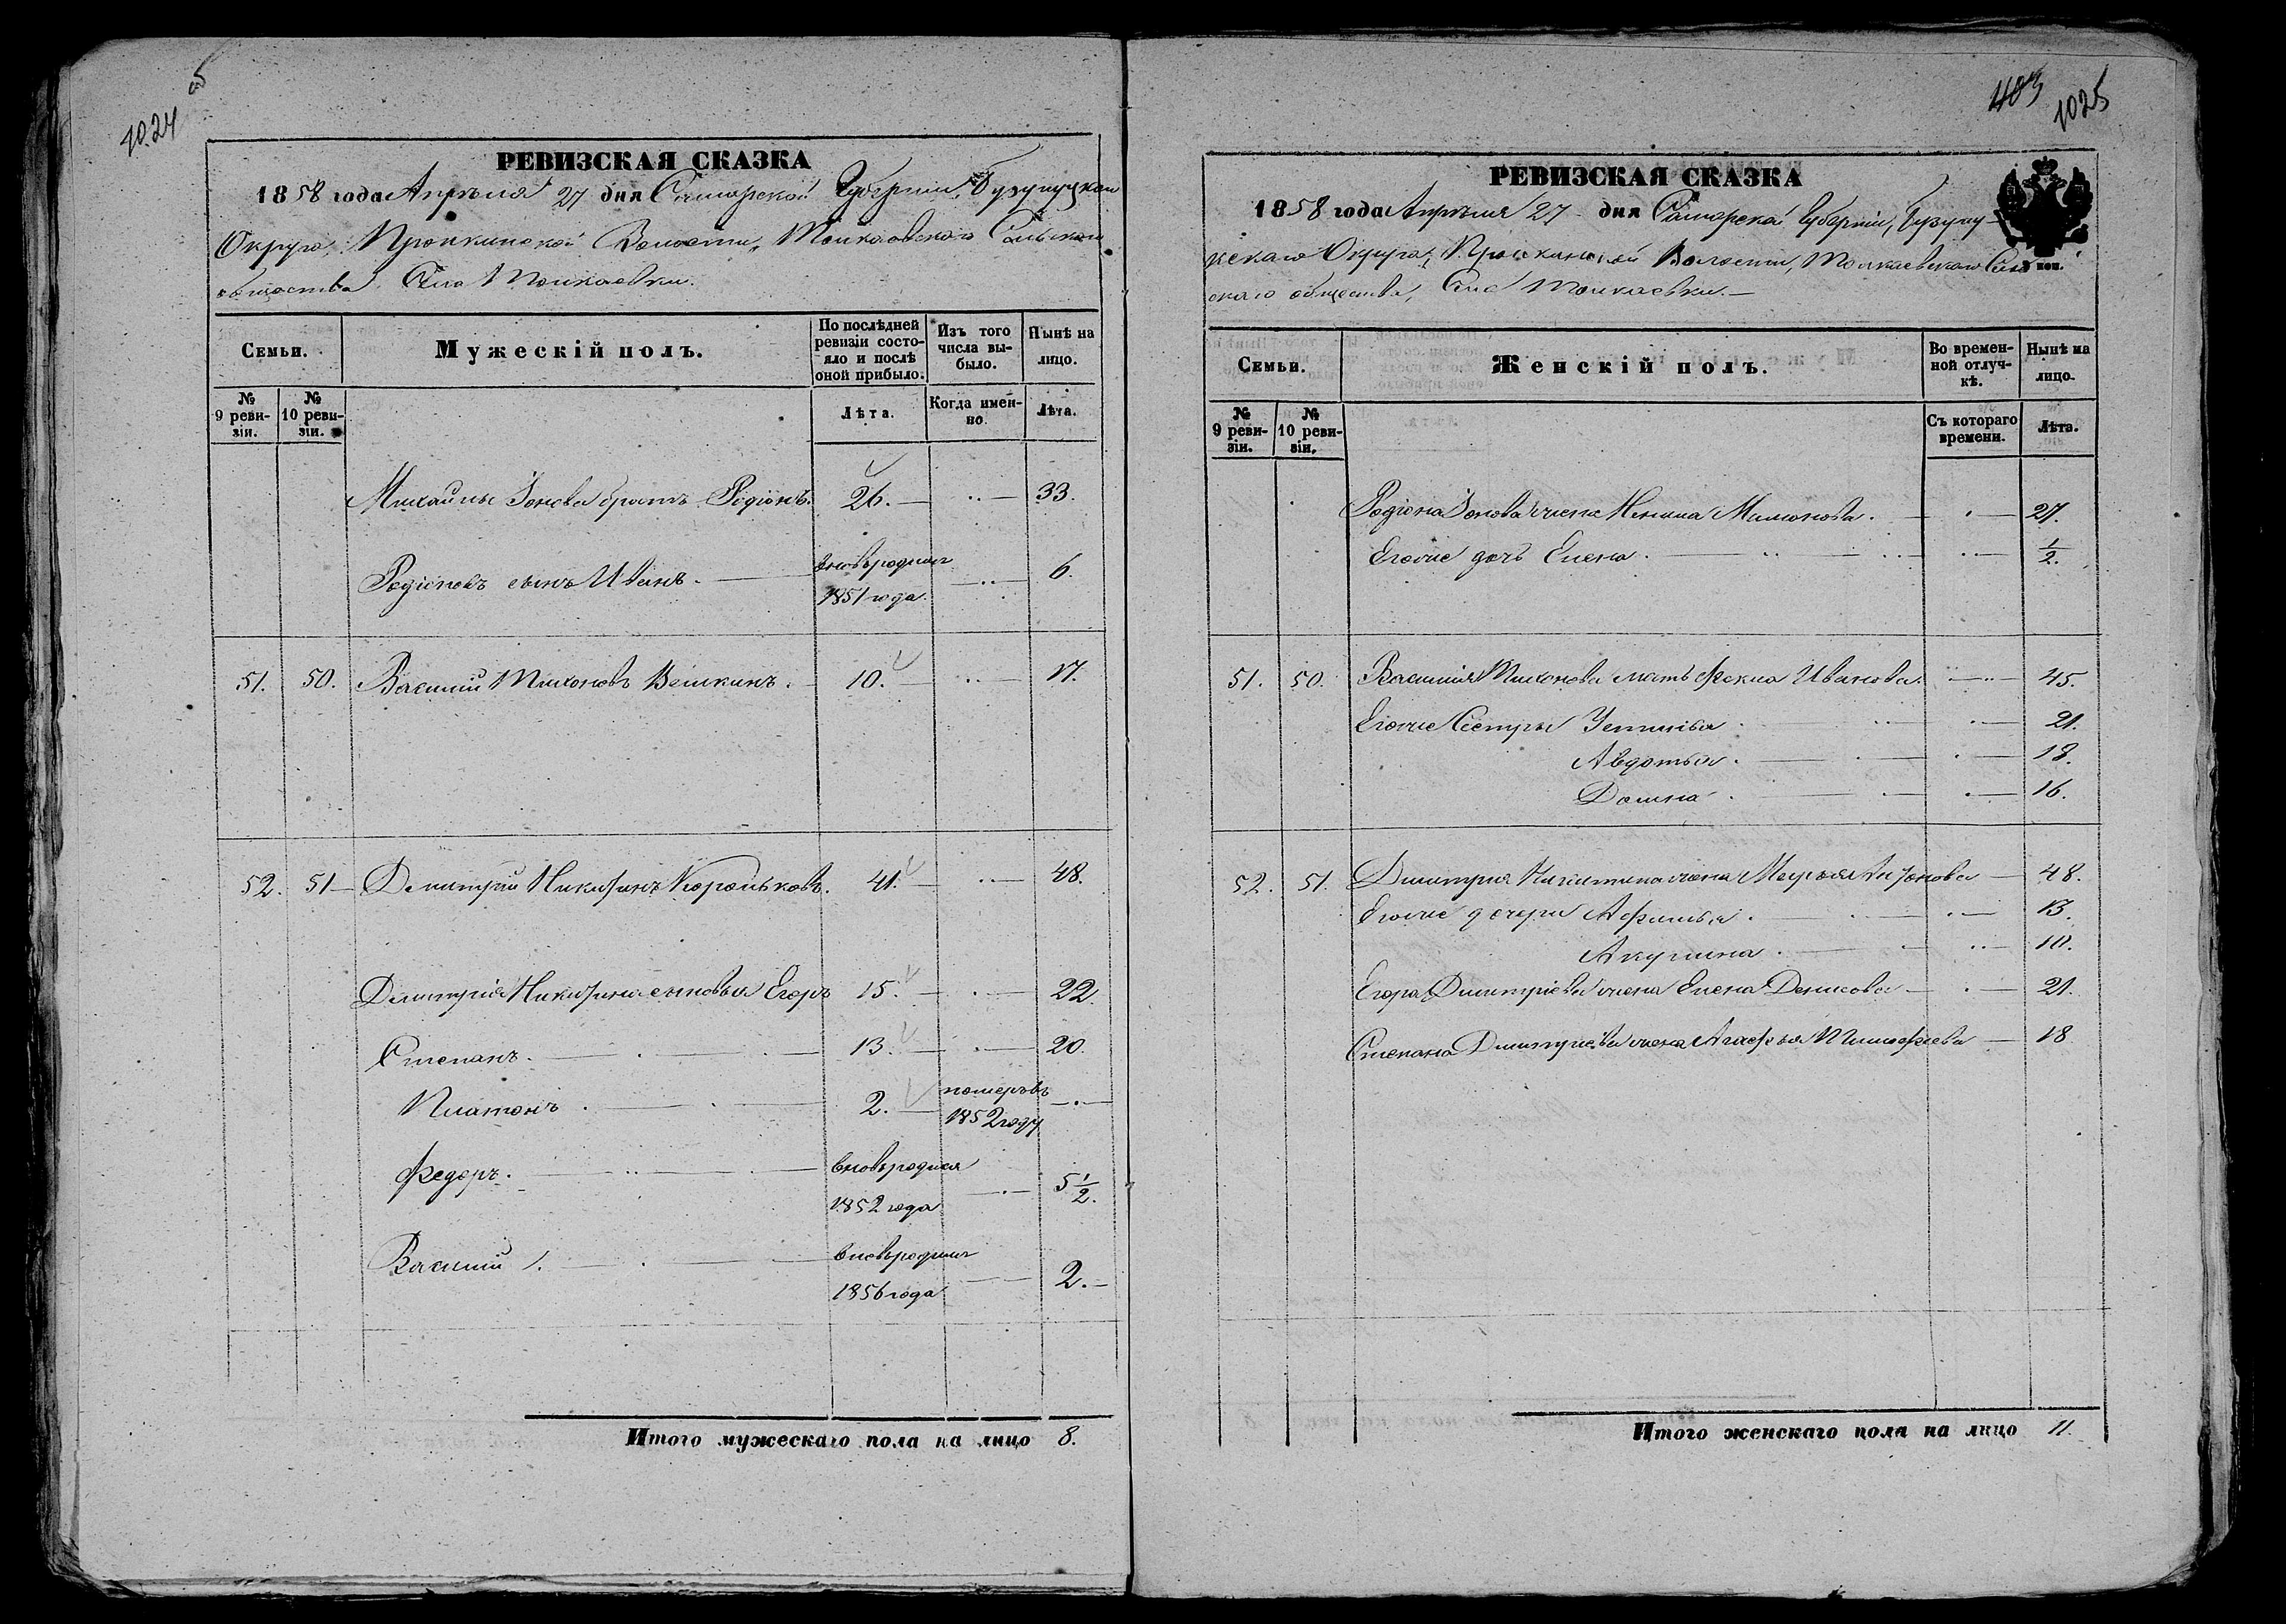 1024 об
РЕВИЗСКАЯ СКАЗКА
1858 года Апрѣля 27 дня Самарской Губерніи, Бузулуцкаго
Округа, Пронкинской Волости, Толкаевскаго Сельскаго
общества Села Толкаевки.
Семьи.
Мужескій полъ.
По послѣдней ревизіи состояло и послѣ оной прибыло.
Изъ того числа выбыло.
Нынѣ на лицо.
№ 9 ревизіи.
№ 10 ревизіи.
Лѣта.
Когда именно.
Лѣта.
Михайлы Іонова братъ Родіонъ. 26. 33.
Родіоновъ сынъ Иванъ. вновьродился 1851 года. 6.
51. 50. Василій Тихоновъ 10. 17.
52. 51 Дмитрій Никитинъ Корольковъ. 41. 48.
Дмитрія Никитина сыновья Егоръ 15. 22.
Степанъ. 13. 20.
Платонъ. 2. померъ въ 1852 году
Федоръ. вновьродился 1852 года 5 1/2.
Василій 1. вновьродился 1856 года 2.
Итого мужескаго пола на лицо 8.
403 1025
РЕВИЗСКАЯ СКАЗКА
1858 года Апрѣля 27 дня Самарской Губерніи, Бузулу-
цкаго Округа, Пронкинской Волости, Толкаевскаго Сель
коп.
скаго общества, Села Толкаевки.
Семьи.
Женскій полъ.
Во временной отлучкѣ.
Нынѣ на лицо.
№ 9 ревизіи.
№ 10 ревизіи.
Съ котораго времени.
Лѣта.
Родіона Іонова жена 27.
Егоже дочь Елена. 1/2.
51. 50. Василія Тихонова мать Фекла Иванова. 45.
Егоже Сестры Устинья 21.
Авдотья. 18.
Домна. 16.
52. 51. Дмитрія Никитина жена Марья 48.
Егоже дочери Афимья. 13.
Акулина. 10.
Егора Дмитріева жена Елена Денисова 21.
Степана Дмитріева жена Агафья Тимофеева 18
Итого женскаго пола на лицо 11.